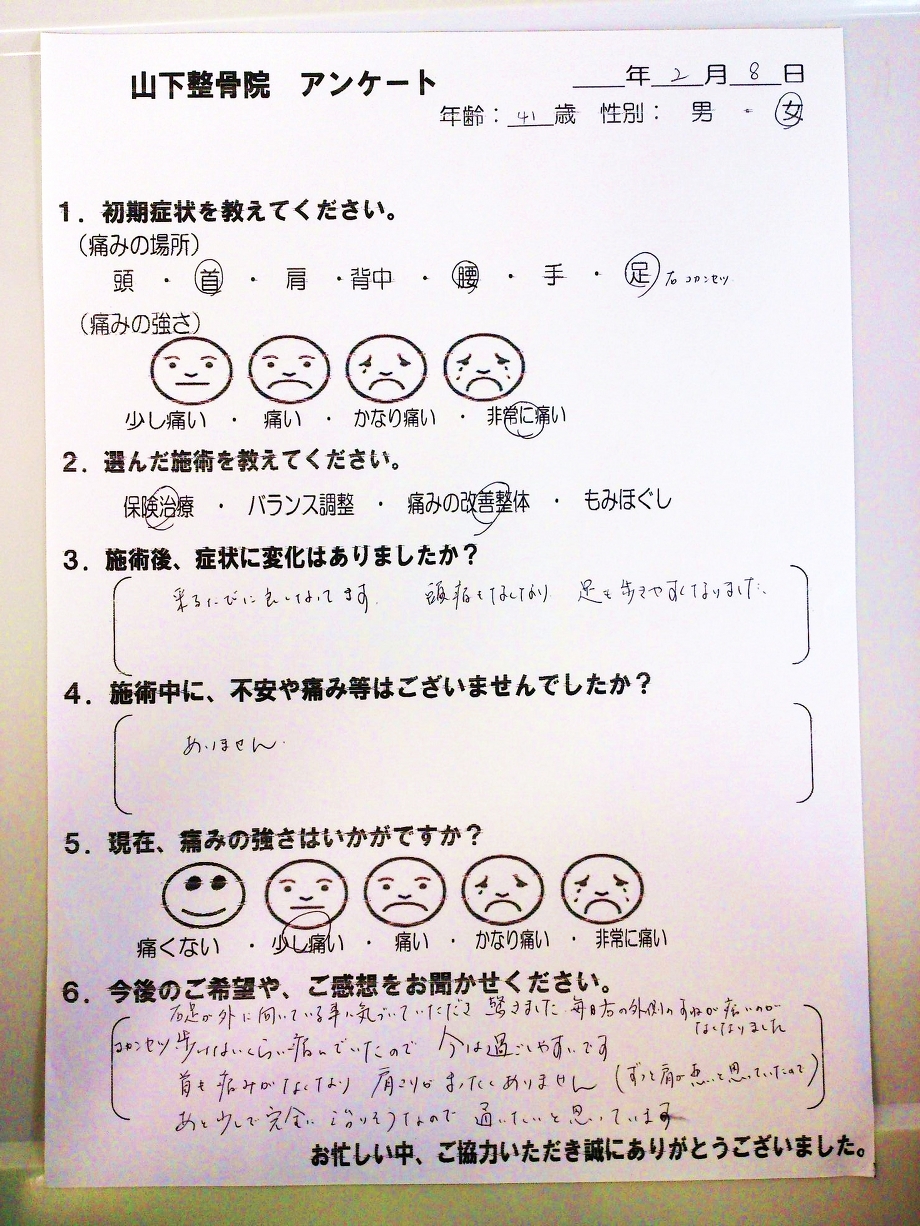 山下整骨院 アンケート
年 2 月 8 日
年齢：41歳 性別： 男 ・ 女
1．初期症状を教えてください。
（痛みの場所）
頭 ・ 首 ・ 肩 ・背中 ・ 腰 ・ 手 ・ 足 右コカンセツ
（痛みの強さ）
少し痛い ・ 痛い ・ かなり痛い ・ 非常に痛い
2．選んだ施術を教えてください。
保険治療 ・ バランス調整 ・ 痛みの改善整体 ・ もみほぐし
3．施術後、症状に変化はありましたか？
来るたびに良くなってます. 頭痛もなくなり 足も歩きやすくなりました.
4．施術中に、不安や痛み等はございませんでしたか？
ありません.
5．現在、痛みの強さはいかがですか？
痛くない ・ 少し痛い ・ 痛い ・ かなり痛い ・ 非常に痛い
6．今後のご希望や、ご感想をお聞かせください。
右足が外に向いている事に気づいていただき 驚きました. 毎日右の外側のすねが痛いのが
なくなりました
コカンセツ 歩けないくらい痛んでいたので 今は過ごしやすいです
首も痛みがなくなり 肩こりがまったくありません (ずっと肩が悪いと思っていたので)
あと少しで完全に治りそうなので 通いたいと思っています
お忙しい中、ご協力いただき誠にありがとうございました。